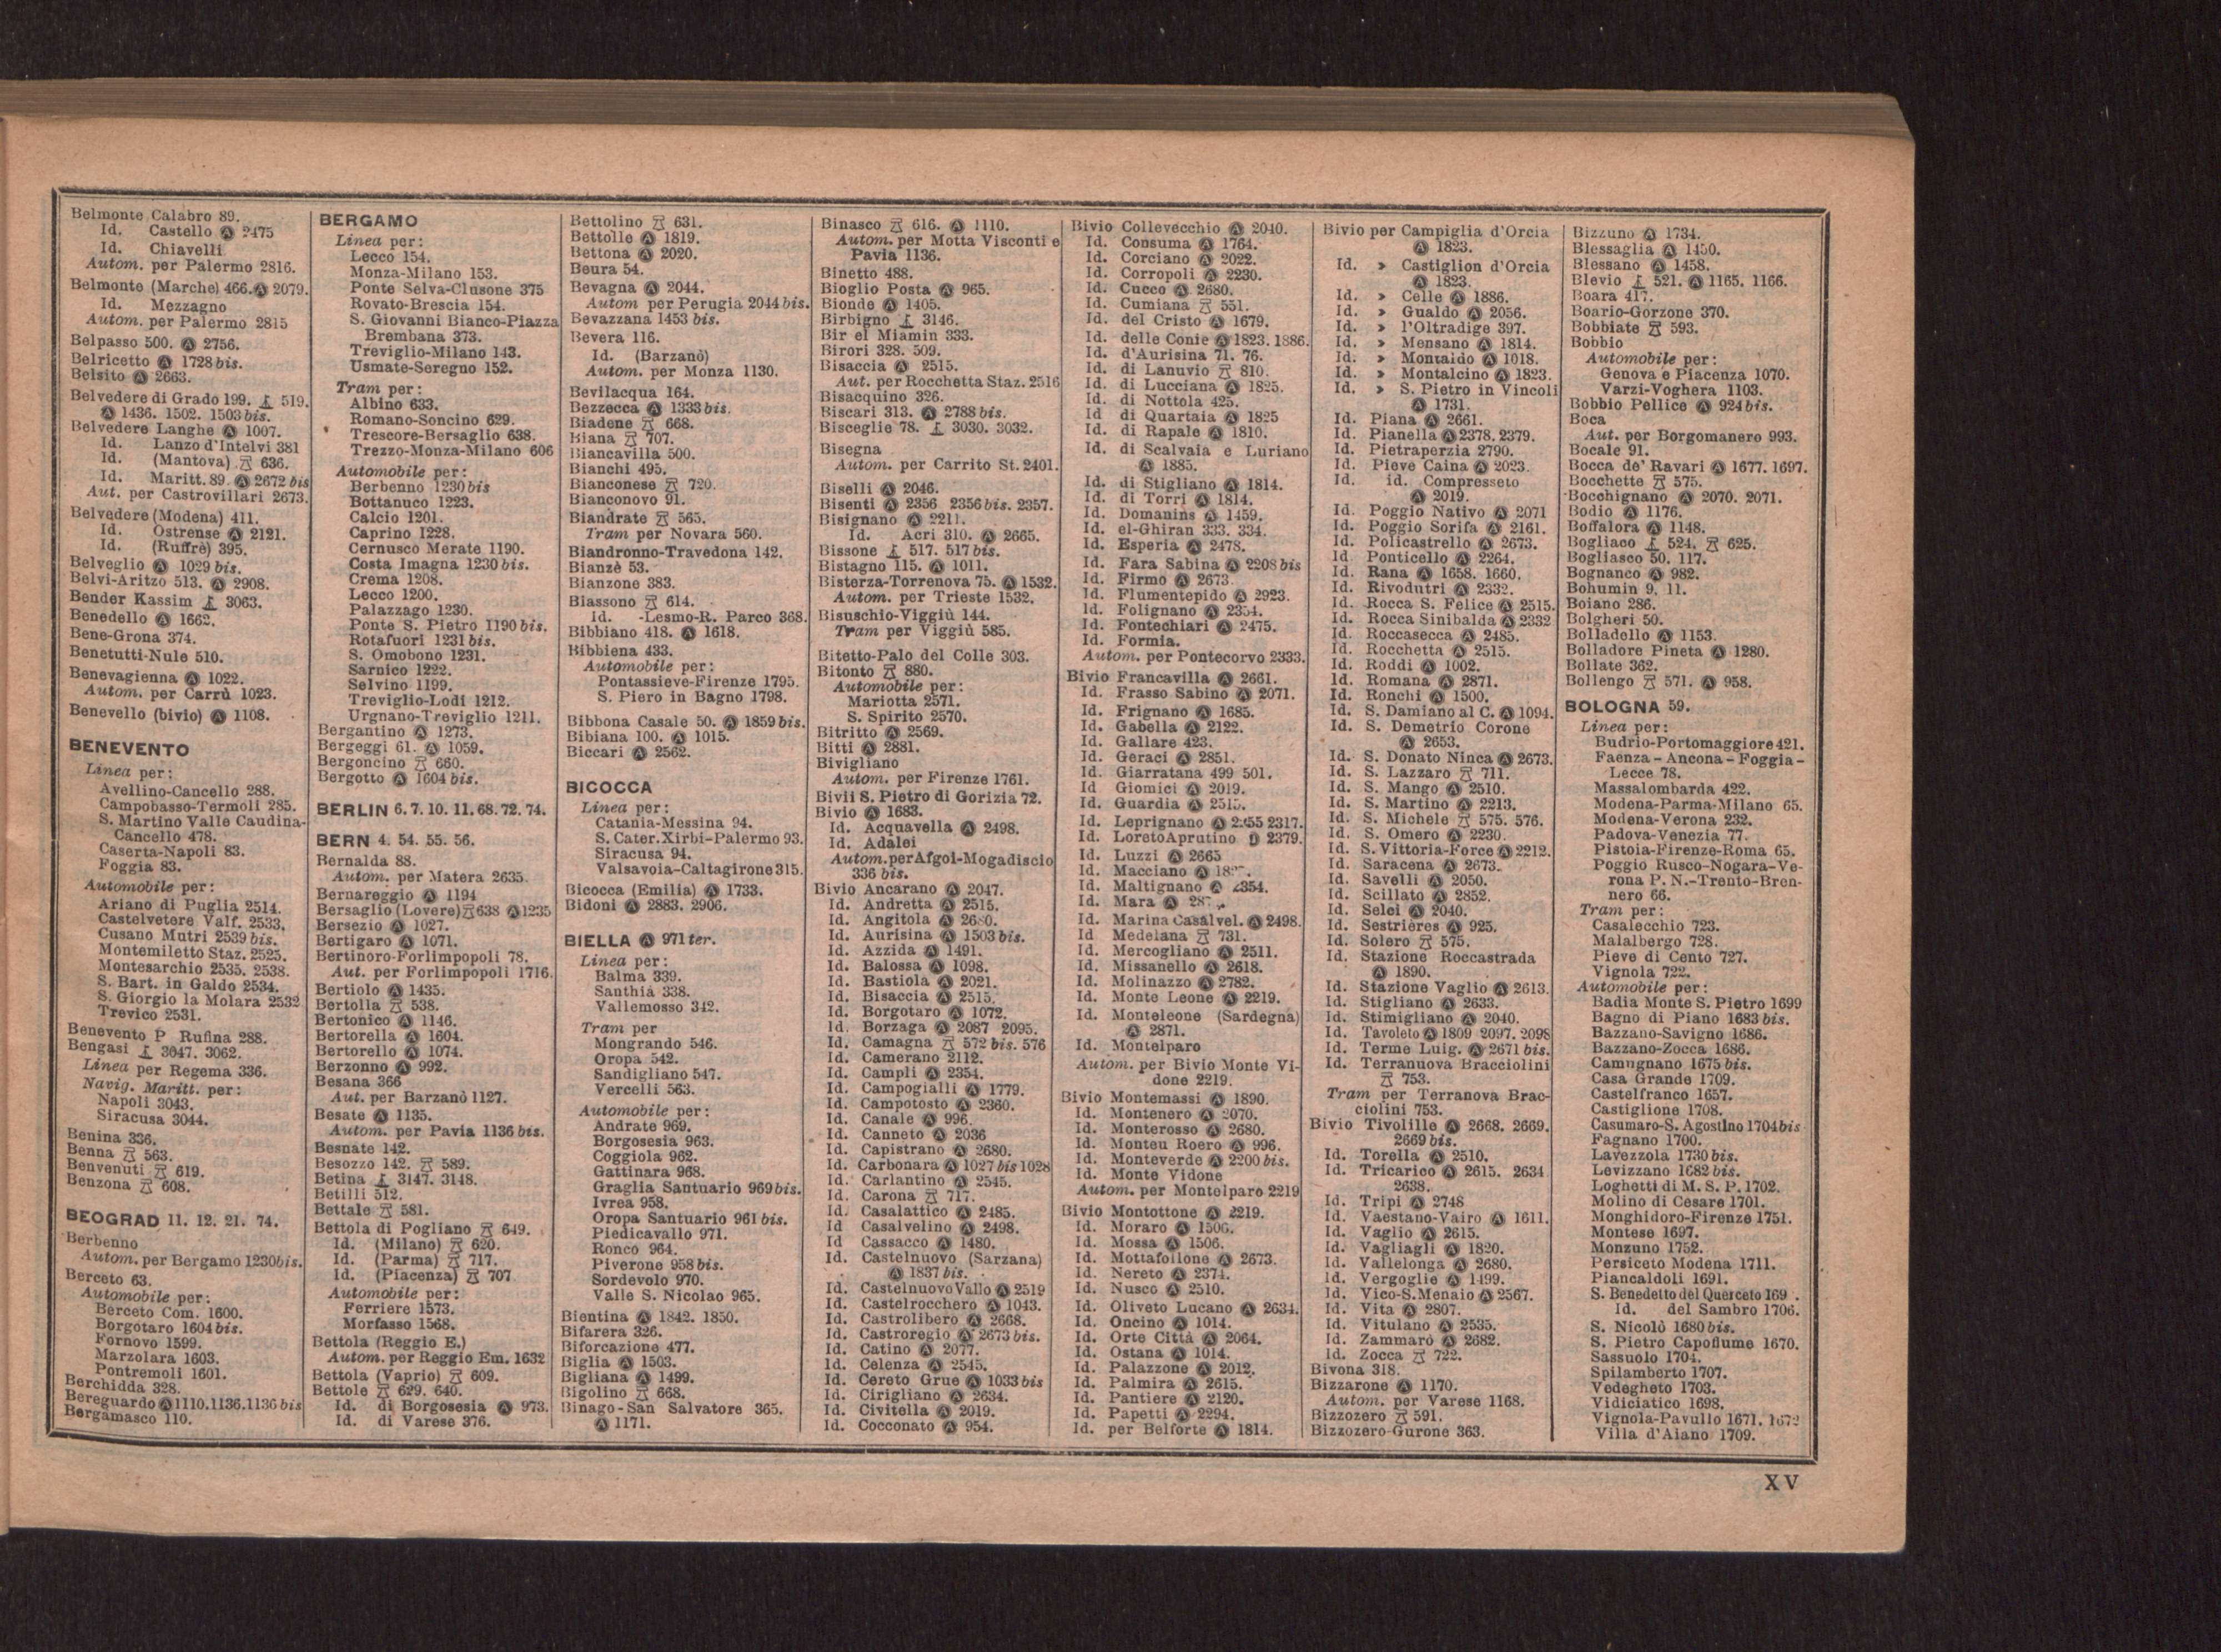 Belmonte Calabro 89.
Id. Castello Ⓐ 2475
Id. Chiavelli
Autom. per Palermo 2816.
Belmonte (Marche) 466. Ⓐ 2079.
Id. Mezzagno
Autom. per Palermo 2815
Belpasso 500. Ⓐ 2756.
Belricetto Ⓐ 1728 bis.
Belsito Ⓐ 2663.
Belvedere di Grado 199. 519.
Ⓐ 1436. 1502. 1503 bis.
Belvedere Langhe Ⓐ 1007.
Id. Lanzo d'Intelvi 381
Id. (Mantova) 636.
Id. Maritt. 89. Ⓐ 2672 bis
Aut. per Castrovillari 2673.
Belvedere (Modena) 411.
Id. Ostrense Ⓐ 2121.
Id. (Ruffrè) 395.
Belveglio Ⓐ 1029 bis.
Belvi-Aritzo 513. Ⓐ 2908.
Bender Kassim 3063.
Benedello Ⓐ 1662.
Bene-Grona 374.
Benetutti-Nule 510.
Benevagienna Ⓐ 1022.
Autom. per Carrù 1023.
Benevello (bivio) Ⓐ 1108.
BENEVENTO
Linea per:
Avellino-Cancello 288.
Campobasso-Termoli 285.
S. Martino Valle Caudina-
Cancello 478.
Caserta-Napoli 83.
Foggia 83.
Automobile per:
Ariano di Puglia 2514.
Castelvetere Valf. 2533.
Cusano Mutri 2539 bis.
Montemiletto Staz. 2525.
Montesarchio 2535. 2538.
S. Bart. in Galdo 2534.
S. Giorgio la Molara 2532
Trevico 2531.
Benevento P Rufina 288.
Bengasi 3047. 3062.
Linea per Regema 336.
Navig. Maritt. per:
Napoli 3043.
Siracusa 3044.
Benina 336.
Benna 563.
Benvenuti 619.
Benzona 608.
BEOGRAD 11. 12. 21. 74.
Berbenno
Autom. per Bergamo 1230bis.
Berceto 63.
Automobile per:
Berceto Com. 1600.
Borgotaro 1604 bis.
Fornovo 1599.
Marzolara 1603.
Pontremoli 1601.
Berchidda 328.
Bereguardo Ⓐ 1110.1136.1136 bis
Bergamasco 110.
BERGAMO
Linea per:
Lecco 154.
Monza-Milano 153.
Ponte Selva-Clusone 375
Rovato-Brescia 154.
S. Giovanni Bianco-Piazza
Brembana 373.
Treviglio-Milano 143.
Usmate-Seregno 152.
Tram per:
Albino 633.
Romano-Soncino 629.
Trescore-Bersaglio 638.
Trezzo-Monza-Milano 606
Automobile per:
Berbenno 1230 bis
Bottanuco 1223.
Calcio 1201.
Caprino 1228.
Cernusco Merate 1190.
Costa Imagna 1230 bis.
Crema 1208.
Lecco 1200.
Palazzago 1230.
Ponte S. Pietro 1190 bis.
Rotafuori 1231 bis.
S. Omobono 1231.
Sarnico 1222.
Selvino 1199.
Treviglio-Lodi 1212.
Urgnano-Treviglio 1211.
Bergantino Ⓐ 1273.
Bergeggi 61. Ⓐ 1059.
Bergoncino 660.
Bergotto Ⓐ 1604 bis.
BERLIN 6. 7. 10. 11. 68. 72. 74.
BERN 4. 54. 55. 56.
Bernalda 88.
Autom. per Matera 2635.
Bernareggio Ⓐ 1194
Bersaglio (Lovere) 638 Ⓐ 1235
Bersezio Ⓐ 1027.
Bertigaro Ⓐ 1071.
Bertinoro-Forlimpopoli 78.
Aut. per Forlimpopoli 1716.
Bertiolo Ⓐ 1435.
Bertolla 538.
Bertonico Ⓐ 1146.
Bertorella Ⓐ 1604.
Bertorello Ⓐ 1074.
Berzonno Ⓐ 992.
Besana 366
Aut. per Barzanò 1127.
Besate Ⓐ 1135.
Autom. per Pavia 1136 bis.
Besnate 142.
Besozzo 142. 589.
Betina 3147. 3148.
Betilli 512.
Bettale 581.
Bettola di Pogliano 649.
Id. (Milano) 620.
Id. (Parma) 717.
Id. (Piacenza) 707
Automobile per:
Ferriere 1573.
Morfasso 1568.
Bettola (Reggio E.)
Autom. per Reggio Em. 1632
Bettola (Vaprio) 609.
Bettole 629. 640.
Id. di Borgosesia Ⓐ 973.
Id. di Varese 376.
Bettolino 631.
Bettolle Ⓐ 1819.
Bettona Ⓐ 2020.
Beura 54.
Bevagna Ⓐ 2044.
Autom per Perugia 2044 bis.
Bevazzana 1453 bis.
Bevera 116.
Id. (Barzanò)
Autom. per Monza 1130.
Bevilacqua 164.
Bezzecca Ⓐ 1333 bis.
Biadene 668.
Biana 707.
Biancavilla 500.
Bianchi 495.
Bianconese 720.
Bianconovo 91.
Biandrate 565.
Tram per Novara 560.
Biandronno-Travedona 142.
Bianzè 53.
Bianzone 383.
Biassono 614.
Id. -Lesmo-R. Parco 368.
Bibbiano 418. Ⓐ 1618.
Bibbiena 433.
Automobile per:
Pontassieve-Firenze 1795.
S. Piero in Bagno 1798.
Bibbona Casale 50. Ⓐ 1859 bis.
Bibiana 100. Ⓐ 1015.
Biccari Ⓐ 2562.
BICOCCA
Linea per:
Catania-Messina 94.
S. Cater.Xirbi-Palermo 93.
Siracusa 94.
Valsavoia-Caltagirone 315.
Bicocca (Emilia) Ⓐ 1733.
Bidoni Ⓐ 2883. 2906.
BIELLA Ⓐ 971 ter.
Linea per:
Balma 339.
Santhià 338.
Vallemosso 342.
Tram per
Mongrando 546.
Oropa 542.
Sandigliano 547.
Vercelli 563.
Automobile per:
Andrate 969.
Borgosesia 963.
Coggiola 962.
Gattinara 968.
Graglia Santuario 969 bis.
Ivrea 958.
Oropa Santuario 961 bis.
Piedicavallo 971.
Ronco 964.
Piverone 958 bis.
Sordevolo 970.
Valle S. Nicolao 965.
Bientina Ⓐ 1842. 1850.
Bifarera 326.
Biforcazione 477.
Biglia Ⓐ 1503.
Bigliana Ⓐ 1499.
Bigolino 668.
Binago-San Salvatore 365.
Ⓐ 1171.
Binasco 616. Ⓐ 1110.
Autom. per Motta Visconti e
Pavia 1136.
Binetto 488.
Bioglio Posta Ⓐ 965.
Bionde Ⓐ 1405.
Birbigno 3146.
Bir el Miamin 333.
Birori 328. 509.
Bisaccia Ⓐ 2515.
Aut. per Rocchetta Staz. 2516
Bisacquino 326.
Biscari 313. Ⓐ 2788 bis.
Bisceglie 78. 3030. 3032.
Bisegna
Autom. per Carrito St. 2401.
Biselli Ⓐ 2046.
Bisenti Ⓐ 2356 2356 bis. 2357.
Bisignano Ⓐ 2211.
Id. Acri 310. Ⓐ 2665.
Bissone 517. 517 bis.
Bistagno 115. Ⓐ 1011.
Bisterza-Torrenova 75. Ⓐ 1532.
Autom. per Trieste 1532.
Bisuschio-Viggiù 144.
Tram per Viggiù 585.
Bitetto-Palo del Colle 303.
Bitonto 880.
Automobile per:
Mariotta 2571.
S. Spirito 2570.
Bitritto Ⓐ 2569.
Bitti Ⓐ 2881.
Bivigliano
Autom. per Firenze 1761.
Bivii S. Pietro di Gorizia 72.
Bivio Ⓐ 1683.
Id. Acquavella Ⓐ 2498.
Id. Adalei
Autom. per Afgoi-Mogadiscio
336 bis.
Bivio Ancarano Ⓐ 2047.
Id. Andretta Ⓐ 2515.
Id. Angitola Ⓐ 2680.
Id. Aurisina Ⓐ 1503 bis.
Id. Azzida Ⓐ 1491.
Id. Balossa Ⓐ 1098.
Id. Bastiola Ⓐ 2021.
Id. Bisaccia Ⓐ 2515.
Id. Borgotaro Ⓐ 1072.
Id. Borzaga Ⓐ 2087 2095.
Id. Camagna 572 bis. 576
Id. Camerano 2112.
Id. Campli Ⓐ 2354.
Id. Campogialli Ⓐ 1779.
Id. Campotosto Ⓐ 2360.
Id. Canale Ⓐ 996.
Id. Canneto Ⓐ 2036
Id. Capistrano Ⓐ 2680.
Id. Carbonara Ⓐ 1027 bis 1028
Id. Carlantino Ⓐ 2545.
Id. Carona 717.
Id. Casalattico Ⓐ 2485.
Id Casalvelino Ⓐ 2498.
Id Cassacco Ⓐ 1480.
Id. Castelnuovo (Sarzana)
Ⓐ 1837 bis.
Id. Castelnuovo Vallo Ⓐ 2519
Id. Castelrocchero Ⓐ 1043.
Id. Castrolibero Ⓐ 2668.
Id. Castroregio Ⓐ 2673 bis.
Id. Catino Ⓐ 2077.
Id. Celenza Ⓐ 2545.
Id. Cereto Grue Ⓐ 1033 bis
Id. Cirigliano Ⓐ 2634.
Id. Civitella Ⓐ 2019.
Id. Cocconato Ⓐ 954.
Bivio Collevecchio Ⓐ 2040.
Id. Consuma Ⓐ 1764.
Id. Corciano Ⓐ 2022.
Id. Corropoli Ⓐ 2230.
Id. Cucco Ⓐ 2680.
Id. Cumiana 551.
Id. del Cristo Ⓐ 1679.
Id. delle Conie Ⓐ 1823. 1886.
Id. d'Aurisina 71. 76.
Id. di Lanuvio 810.
Id. di Lucciana Ⓐ 1825.
Id. di Nottola 425.
Id di Quartaia Ⓐ 1825
Id. di Rapale Ⓐ 1810.
Id. di Scalvaia e Luriano
Ⓐ 1885.
Id. di Stigliano Ⓐ 1814.
Id. di Torri Ⓐ 1814.
Id. Domanins Ⓐ 1459.
Id. el-Ghiran 333. 334.
Id. Esperia Ⓐ 2478.
Id. Fara Sabina Ⓐ 2208 bis
Id. Firmo Ⓐ 2673
Id. Flumentepido Ⓐ 2923.
Id. Folignano Ⓐ 2354.
Id. Fontechiari Ⓐ 2475.
Id. Formia.
Autom. per Pontecorvo 2333.
Bivio Francavilla Ⓐ 2661.
Id. Frasso Sabino Ⓐ 2071.
Id. Frignano Ⓐ 1685.
Id. Gabella Ⓐ 2122.
Id. Gallare 423.
Id. Geraci Ⓐ 2851.
Id. Giarratana 499 501.
Id Giomici Ⓐ 2019.
Id. Guardia Ⓐ 2515.
Id. Leprignano Ⓐ 2317.
Id. Loreto Aprutino 2379.
Id. Luzzi Ⓐ 2665
Id. Macciano Ⓐ
Id. Maltignano Ⓐ 2354.
Id. Mara Ⓐ
Id. Marina Casalvel. Ⓐ 2498.
Id Medelana 731.
Id. Mercogliano Ⓐ 2511.
Id. Missanello Ⓐ 2618.
Id. Molinazzo Ⓐ 2782.
Id. Monte Leone Ⓐ 2219.
Id. Monteleone (Sardegna)
Ⓐ 2871.
Id. Montelparo
Autom. per Bivio Monte Vi-
done 2219.
Bivio Montemassi Ⓐ 1890.
Id. Montenero Ⓐ 2070.
Id. Monterosso Ⓐ 2680.
Id. Monteu Roero Ⓐ 996.
Id. Monteverde Ⓐ 2200 bis.
Id. Monte Vidone
Autom. per Montelparo 2219
Bivio Montottone Ⓐ 2219.
Id. Moraro Ⓐ 1506.
Id. Mossa Ⓐ 1506.
Id. Mottafollone Ⓐ 2673.
Id. Nereto Ⓐ 2374.
Id. Nusco Ⓐ 2510.
Id. Oliveto Lucano Ⓐ 2634.
Id. Oncino Ⓐ 1014.
Id. Orte Città Ⓐ 2064.
Id. Ostana Ⓐ 1014.
Id. Palazzone Ⓐ 2012.
Id. Palmira Ⓐ 2615.
Id. Pantiere Ⓐ 2120.
Id. Papetti Ⓐ 2294.
Id. per Belforte Ⓐ 1814.
Bivio per Campiglia d'Orcia
Ⓐ 1823.
Id. » Castiglion d'Orcia
Ⓐ 1823.
Id. » Celle Ⓐ 1886.
Id. » Gualdo Ⓐ 2056.
Id. » l'Oltradige 397.
Id. » Mensano Ⓐ 1814.
Id. » Montaldo Ⓐ 1018.
Id. » Montalcino Ⓐ 1823.
Id. » S. Pietro in Vincoli
Ⓐ 1731.
Id. Piana Ⓐ 2661.
Id. Pianella Ⓐ 2378. 2379.
Id. Pietraperzia 2790.
Id. Pieve Caina Ⓐ 2023.
Id. id. Compresseto
Ⓐ 2019.
Id. Poggio Nativo Ⓐ 2071
Id. Poggio Sorifa Ⓐ 2161.
Id. Policastrello Ⓐ 2673.
Id Ponticello Ⓐ 2264.
Id. Rana Ⓐ 1658. 1660.
Id. Rivodutri Ⓐ 2332.
Id. Rocca S. Felice Ⓐ 2515.
Id. Rocca Sinibalda Ⓐ 2332
Id. Roccasecca Ⓐ 2485.
Id. Rocchetta Ⓐ 2515.
Id. Roddi Ⓐ 1002.
Id. Romana Ⓐ 2871.
Id. Ronchi Ⓐ 1500.
Id. S. Damiano al C. Ⓐ 1094.
Id. S. Demetrio Corone
Ⓐ 2653.
Id. S. Donato Ninca Ⓐ 2673.
Id. S. Lazzaro 711.
Id. S. Mango Ⓐ 2510.
Id. S. Martino Ⓐ 2213.
Id. S. Michele 575. 576.
Id. S. Omero Ⓐ 2230.
Id. S. Vittoria-Force Ⓐ 2212.
Id. Saracena Ⓐ 2673.
Id. Savelli Ⓐ 2050.
Id. Scillato Ⓐ 2852.
Id. Selci Ⓐ 2040.
Id. Sestrières Ⓐ 925.
Id. Solero 575.
Id. Stazione Roccastrada
Ⓐ 1890.
Id. Stazione Vaglio Ⓐ 2613.
Id. Stigliano Ⓐ 2633.
Id. Stimigliano Ⓐ 2040.
Id. Tavoleto Ⓐ 1809 2097. 2098
Id. Terme Luig. Ⓐ 2671 bis.
Id. Terranuova Bracciolini
753.
Tram per Terranova Brac-
ciolini 753.
Bivio Tivolille Ⓐ 2668. 2669.
2669 bis.
Id. Torella Ⓐ 2510.
Id. Tricarico Ⓐ 2615. 2634
2638.
Id. Tripi Ⓐ 2748
Id. Vaestano-Vairo Ⓐ 1611.
Id. Vaglio Ⓐ 2615.
Id. Vagliagli Ⓐ 1820.
Id. Vallelonga Ⓐ 2680.
Id. Vergoglie Ⓐ 1499.
Id. Vico-S.Menaio Ⓐ 2567.
Id. Vita Ⓐ 2807.
Id. Vitulano Ⓐ 2535.
Id. Zammaro Ⓐ 2682.
Id. Zocca 722.
Bivona 318.
Bizzarone Ⓐ 1170.
Autom. per Varese 1168.
Bizzozero 591.
Bizzozero-Gurone 363.
Bizzuno Ⓐ 1734.
Blessaglia Ⓐ 1450.
Blessano Ⓐ 1458.
Blevio 521. Ⓐ 1165. 1166.
Boara 417.
Boario-Gorzone 370.
Bobbiate 593.
Bobbio
Automobile per:
Genova e Piacenza 1070.
Varzi-Voghera 1103.
Bobbio Pellice Ⓐ 924 bis.
Boca
Aut. per Borgomanero 993.
Bocale 91.
Bocca de' Ravari Ⓐ 1677. 1697.
Bocchette 575.
Bocchignano Ⓐ 2070. 2071.
Bodio Ⓐ 1176.
Boffalora Ⓐ 1148.
Bogliaco 524. 625.
Bogliasco 50. 117.
Bognanco Ⓐ 982.
Bohumin 9. 11.
Boiano 286.
Bolgheri 50.
Bolladello Ⓐ 1153.
Bolladore Pineta Ⓐ 1280.
Bollate 362.
Bollengo 571. Ⓐ 958.
BOLOGNA 59.
Linea per:
Budrio-Portomaggiore 421.
Faenza-Ancona-Foggia-
Lecce 78.
Massalombarda 422.
Modena-Parma-Milano 65.
Modena-Verona 232.
Padova-Venezia 77.
Pistoia-Firenze-Roma 65.
Poggio Rusco-Nogara-Ve-
rona P. N.-Trento-Bren-
nero 66.
Tram per:
Casalecchio 723.
Malalbergo 728.
Pieve di Cento 727.
Vignola 722.
Automobile per:
Badia Monte S. Pietro 1699
Bagno di Piano 1683 bis.
Bazzano-Savigno 1686.
Bazzano-Zocca 1686.
Camugnano 1675 bis.
Casa Grande 1709.
Castelfranco 1657.
Castiglione 1708.
Casumaro-S. Agostino 1704 bis
Fagnano 1700.
Lavezzola 1730 bis.
Levizzano 1682 bis.
Loghetti di M. S. P. 1702.
Molino di Cesare 1701.
Monghidoro-Firenze 1751.
Montese 1697.
Monzuno 1752.
Persiceto Modena 1711.
Piancaldoli 1691.
S. Benedetto del Querceto
Id. del Sambro 1706.
S. Nicolò 1680 bis.
S. Pietro Capofiume 1670.
Sassuolo 1704.
Spilamberto 1707.
Vedegheto 1703.
Vidiciatico 1698.
Vignola-Pavullo 1671. 1672
Villa d'Aiano 1709.
XV